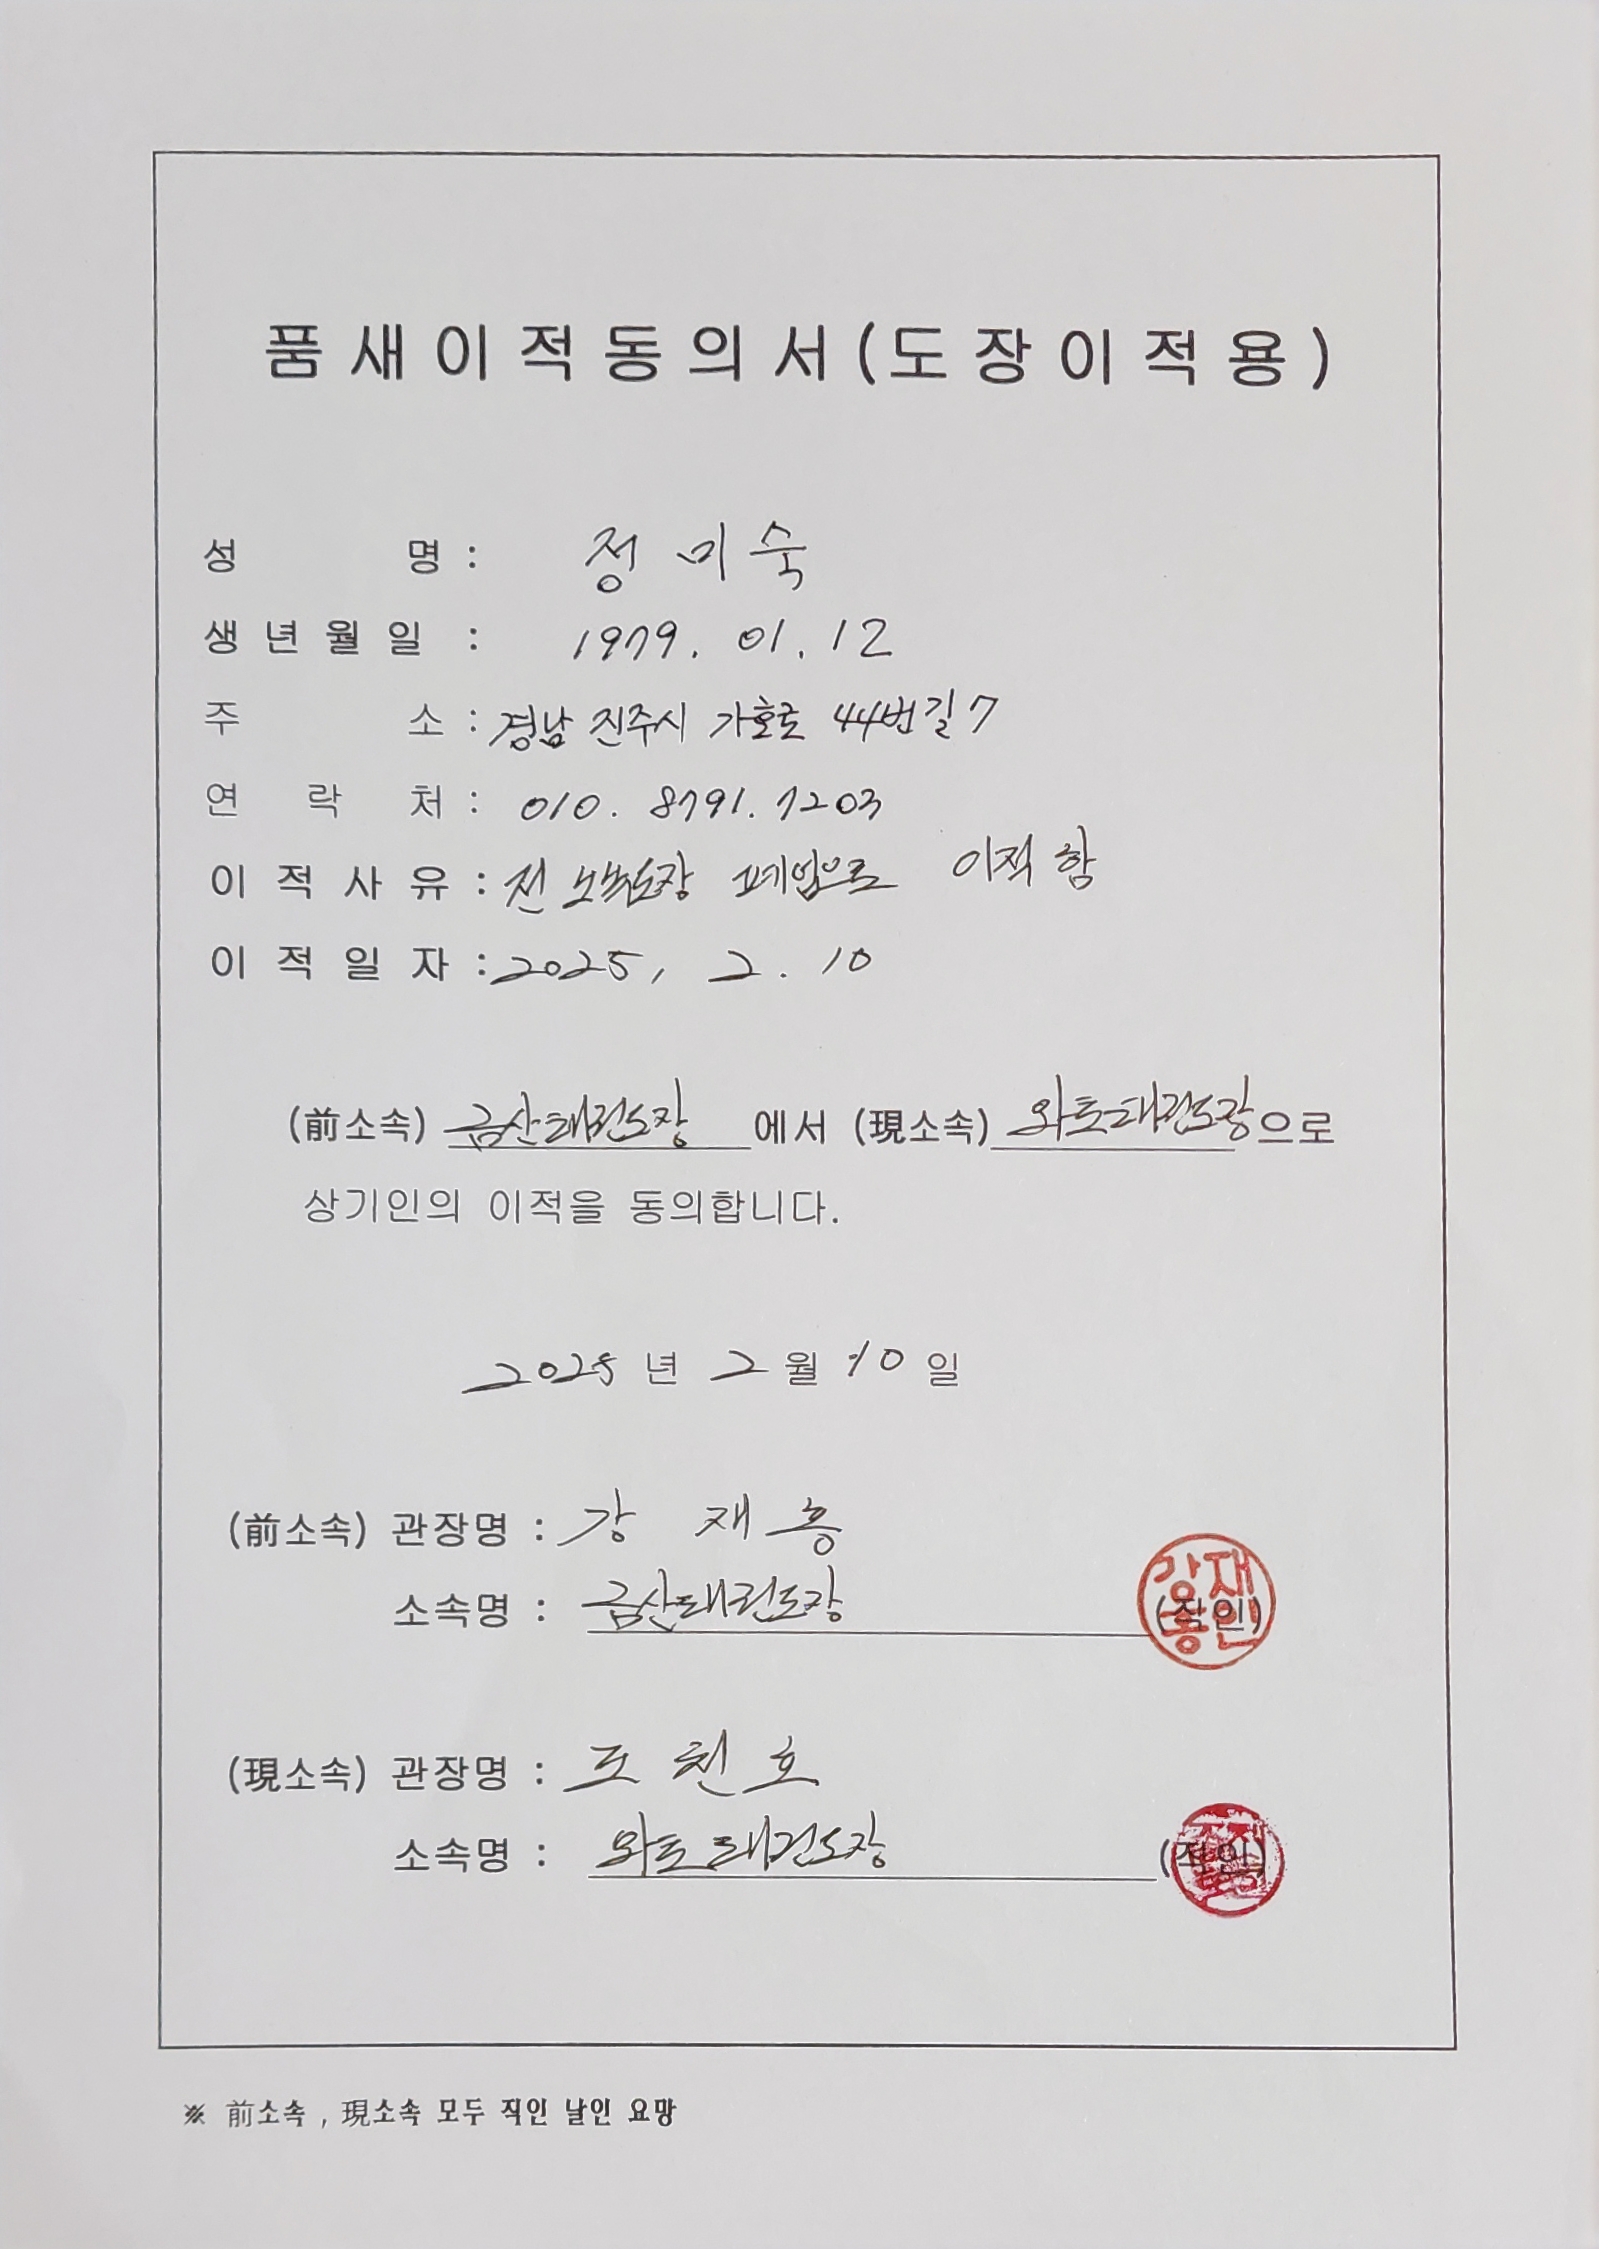 품새이적동의서(도장이적용)
성 명 : 정미숙
생년월일 : 1979. 01. 12
주 소 : 경남 진주시 가호로 44번길 7
연 락 처 : 010. 8791. 7203
이적사유 : 전 소속도장 폐업으로 이적함
이적일자 : 2025, 2. 10
(前소속) 금산태권도장 에서 (現소속) 와룡태권도장으로
상기인의 이적을 동의합니다.
2025 년 2 월 10 일
(前소속) 관장명 : 강 재 흥
소속명 : 금산태권도장
(직인)
(現소속) 관장명 : 천호
소속명 : 태권도장
(직인)
※ 前소속 , 現소속 모두 직인 날인 요망